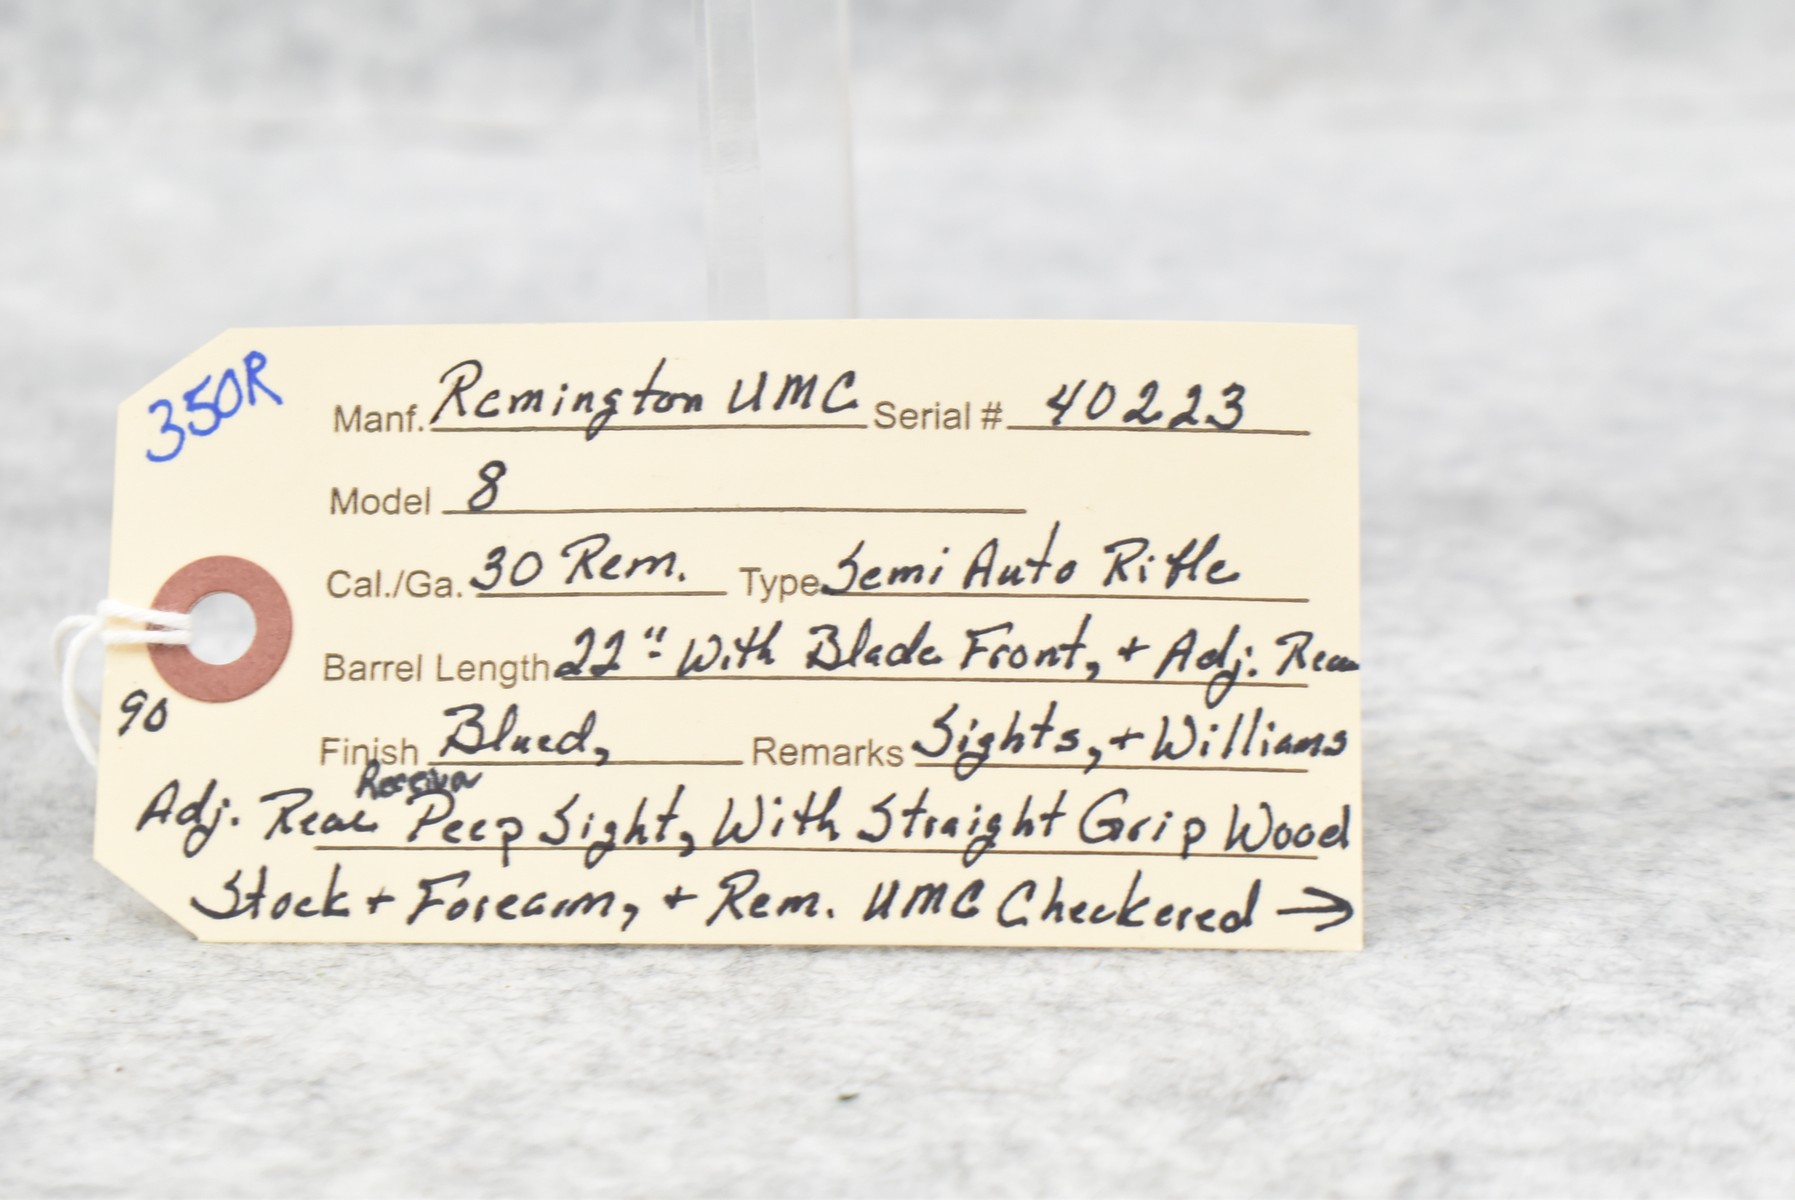 350R
Manf. Remington UMC Serial # 40223
Model 8
Cal./Ga. 30 Rem. Type Semi Auto Rifle
Barrel Length 22" With Blade Front, + Adj. Rear
90
Finish Blued, Remarks Sights, + Williams
Receiver
Adj. Rear Peep Sight, With Straight Grip Wood
Stock + Forearm, + Rem. UMC Checkered →